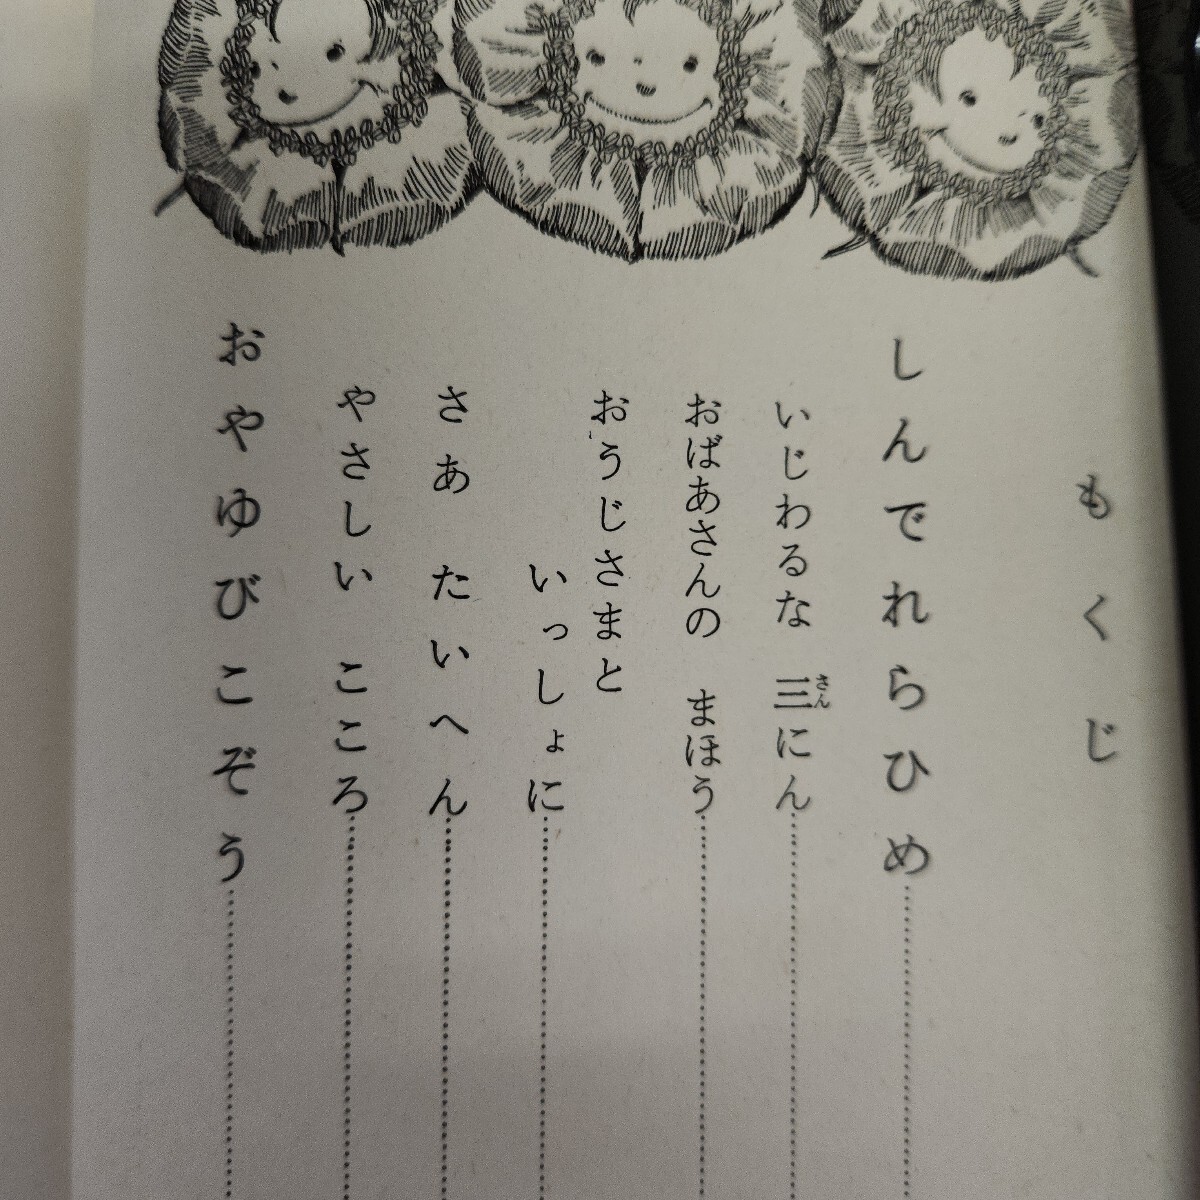 もくじ
しんでれらひめ
いじわるな 三にん
さん
おばあさんの まほう
おうじさまと
いっしょに
さあ たいへん
やさしい こころ
おやゆびこぞう